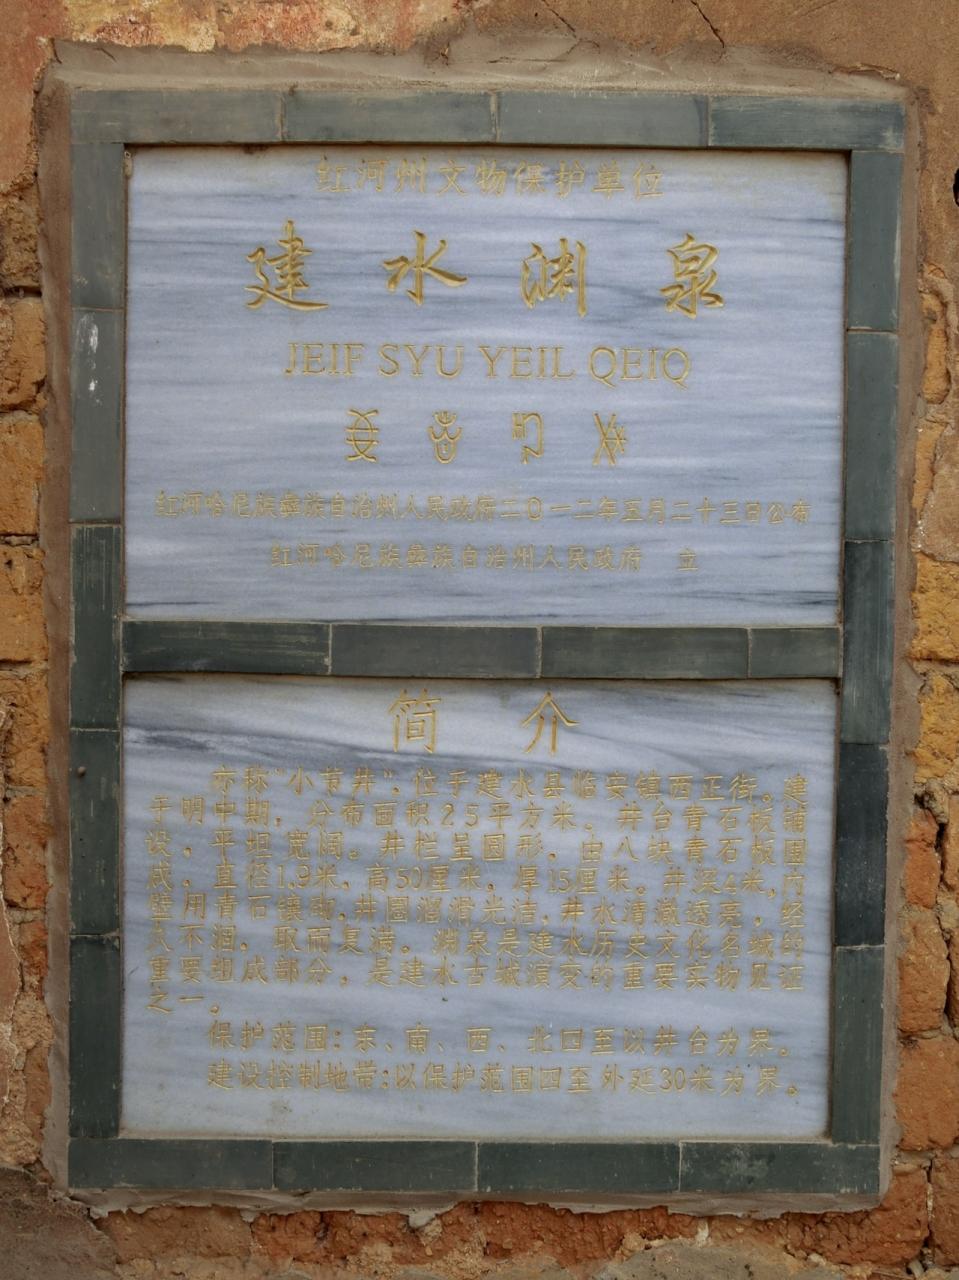 红河州文物保护单位
建水渊泉
JEIF SYU YEIL QEIQ
红河哈尼族彝族自治州人民政府二〇一二年五月二十三日公布
红河哈尼族彝族自治州人民政府 立
简介
亦称“小节井”，位于建水县临安镇西正街。建
于明中期，分布面积25平方米。井台青石板铺
设，平坦宽阔。井栏呈圆形，由八块青石板围
成，直径1.9米，高50厘米，厚15厘米。井深4米，内
壁用青石镶砌，井圈溜滑光洁，井水清澈透亮，经
久不涸，取而复满。渊泉是建水历史文化名城的
重要组成部分，是建水古城演变的重要实物见证
之一。
保护范围：东、南、西、北四至以井台为界。
建设控制地带：以保护范围四至外延30米为界。